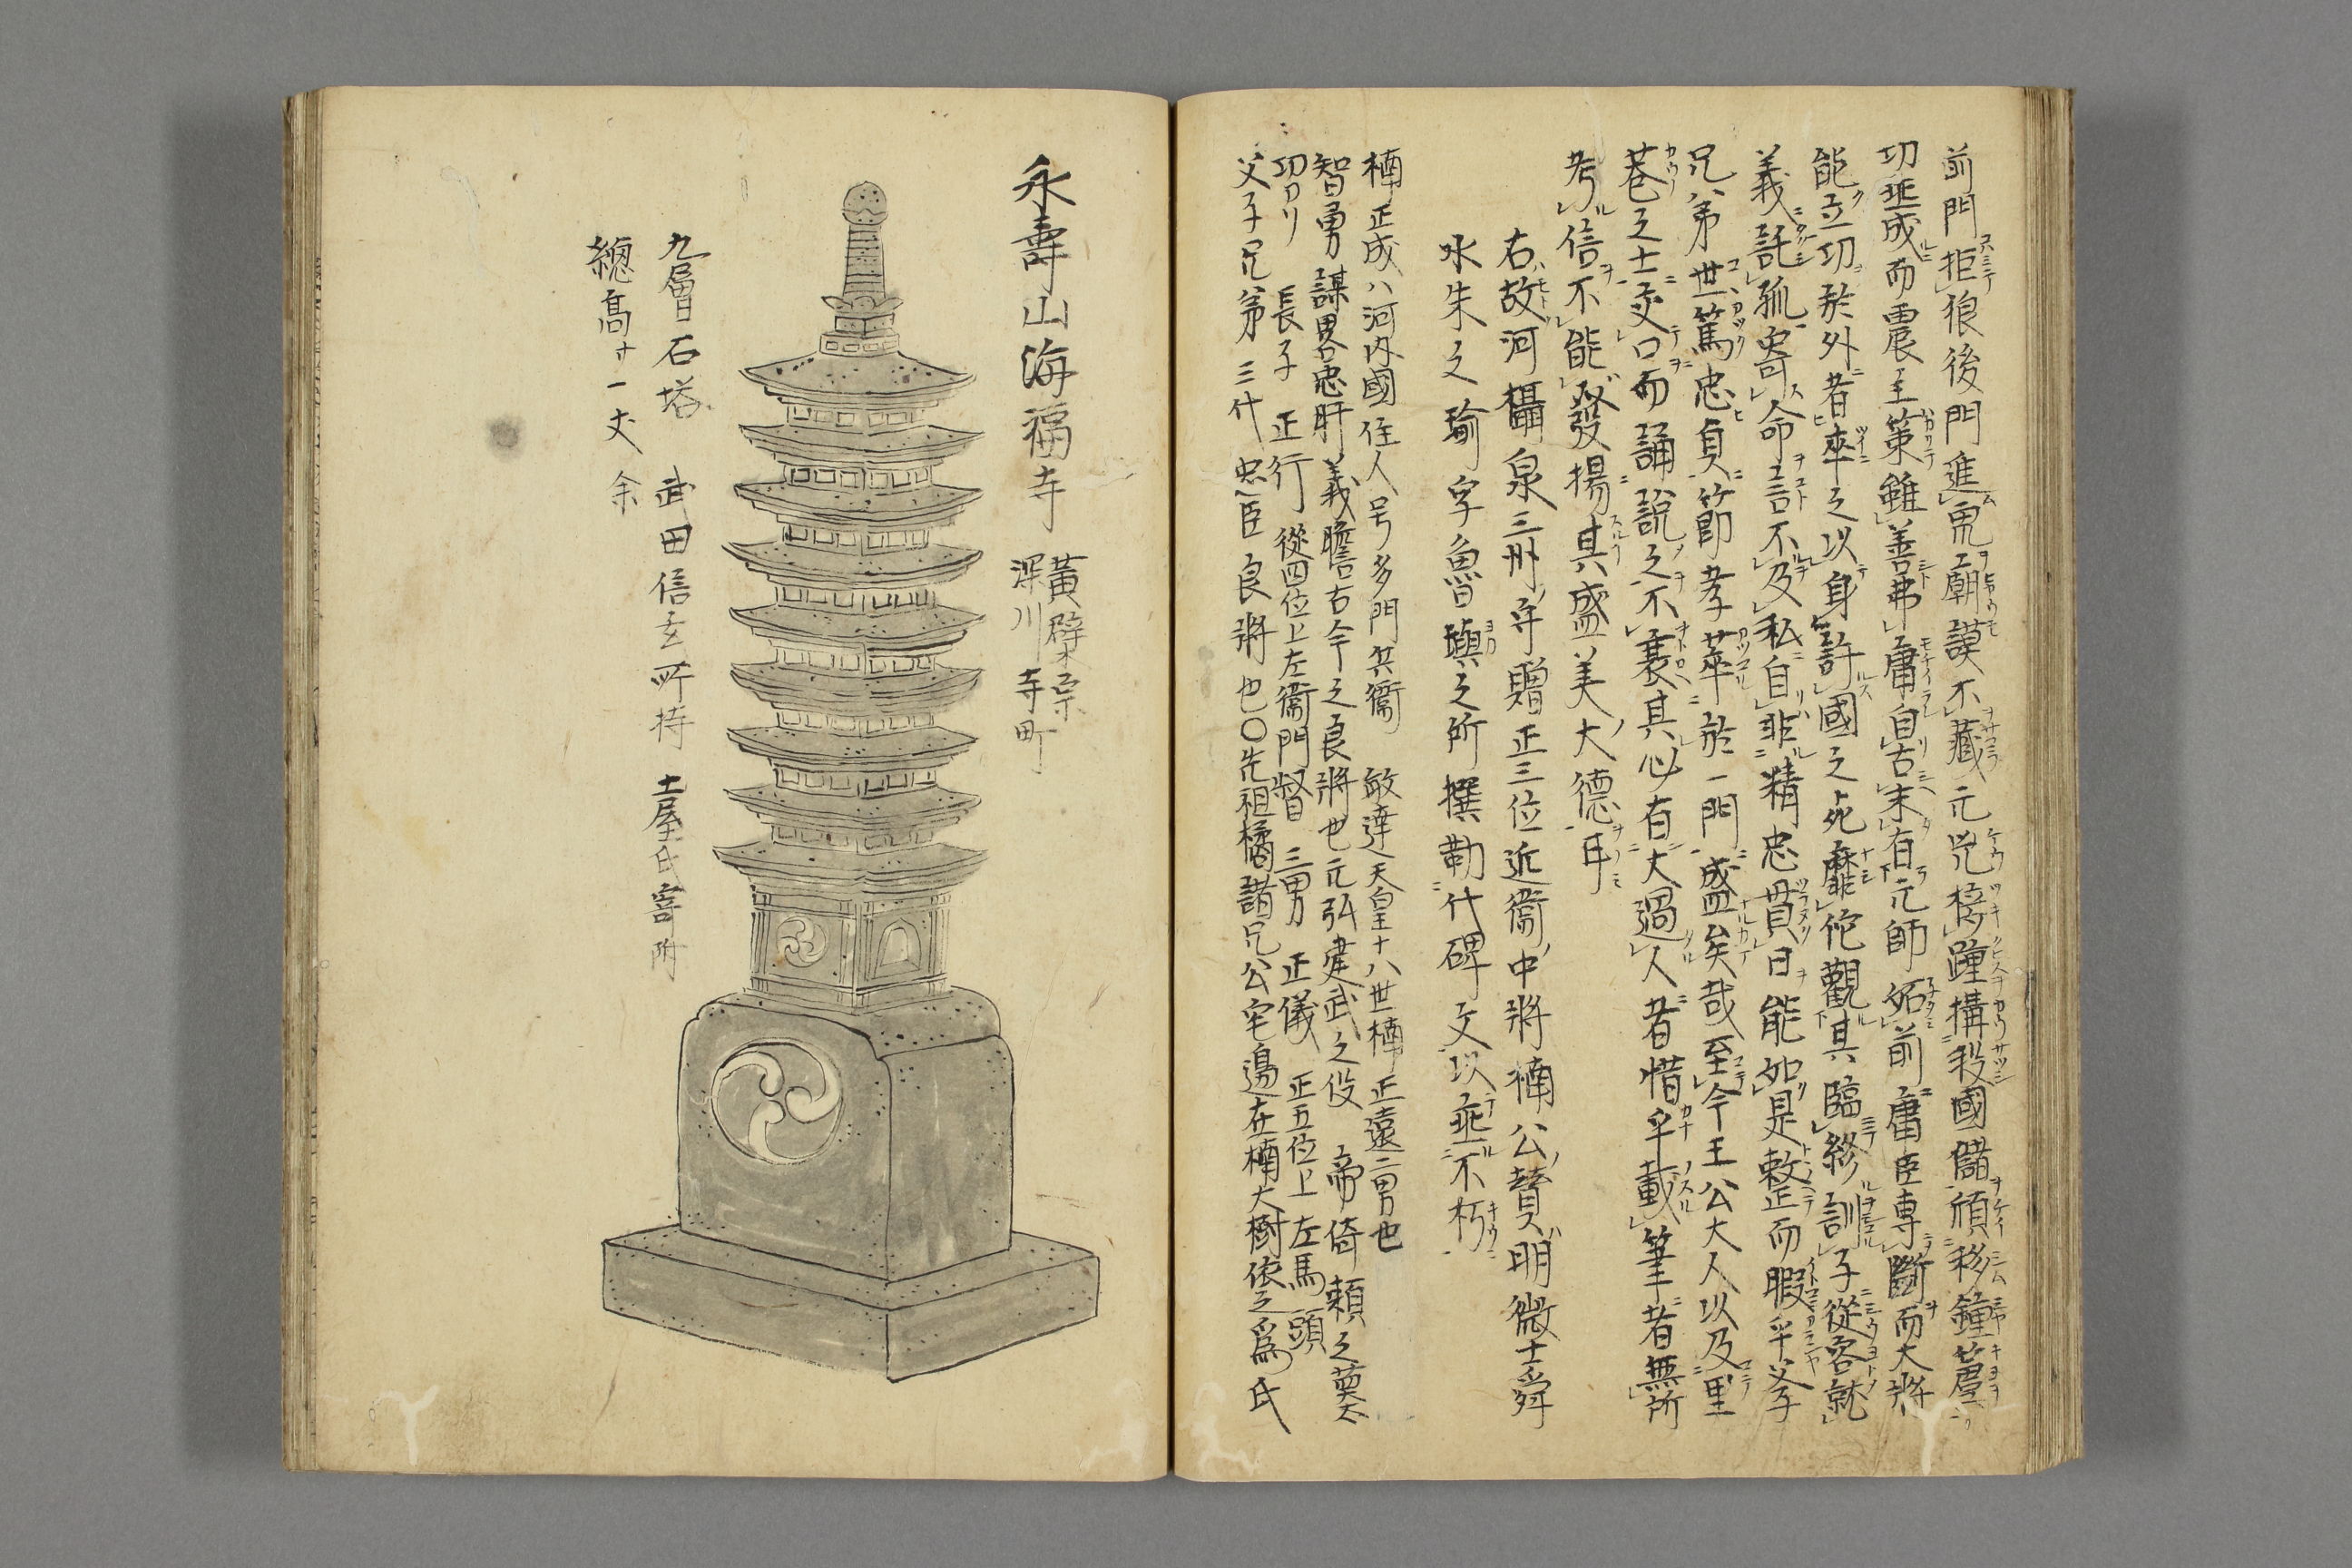 前門拒狼後門進虎廟謨不藏元兇接踵構殺國儲傾移鐘簴
功垂成而震主策雖善弗庸自古未有元帥妬前庸臣専斷而大將
能立功於外者卒之以身許國之死靡佗觀其臨終訓子從容就
義託孤寄命言不及私自非精忠貫日能如是整而暇乎父子
兄弟世篤忠貞節孝萃於一門盛矣哉至今王公大人以及里
巷之士交口而誦說之不衰其必有大過人者惜乎載筆者無所
考信不能發揚其盛美大德耳
右故河攝泉三州守贈正三位近衞中將楠公賛明微士舜
水朱之瑜字魯璵之所撰勒代碑文以垂不朽
楠正成ハ河内國住人号多門兵衞 敏達天皇十八世楠正遠二男也
智勇謀畧忠肝義膽古今之良將也元弘建武之役 帝倚頼之奠
功ナリ 長子 正行 從四位上左衞門督 三男 正儀 正五位上 左馬頭
父子兄弟三代忠臣良將也〇先祖橘諸兄公宅邉在楠大樹依之爲氏
永壽山海福寺 黃檗宗
深川 寺町
九層石塔 武田信玄所持 土屋氏寄附
總高サ一丈余